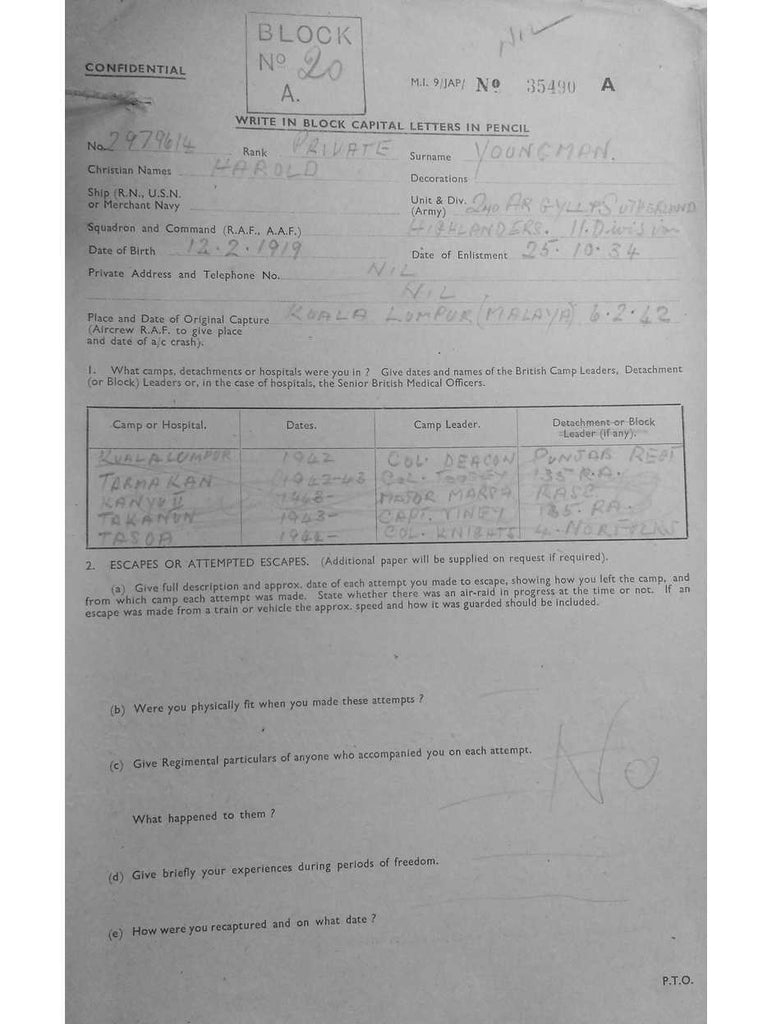 BLOCK
Nº 20
A.
NIL
CONFIDENTIAL
M.I. 9/JAP/ Nº 35490 A
WRITE IN BLOCK CAPITAL LETTERS IN PENCIL
No. 2979614 Rank PRIVATE Surname YOUNGMAN.
Christian Names HAROLD Decorations
Ship (R.N., U.S.N.
or Merchant Navy
Unit & Div. 2ND ARGYLL & SUTHERLAND
(Army)
Squadron and Command (R.A.F., A.A.F.) HIGHLANDERS. 11. Division
Date of Birth 12.2.1919 Date of Enlistment 25.10.34
Private Address and Telephone No. NIL
NIL.
Place and Date of Original Capture KUALA LUMPUR (MALAYA) 6.2.42
(Aircrew R.A.F. to give place
and date of a/c crash).
1. What camps, detachments or hospitals were you in ? Give dates and names of the British Camp Leaders, Detachment
(or Block) Leaders or, in the case of hospitals, the Senior British Medical Officers.
Camp or Hospital. Dates. Camp Leader. Detachment or Block
Leader (if any).
KUALA LUMPUR 1942 COL. DEACON PUNJAB REGT
TARMAKAN 1942-43 COL. TOOSEY 135 R.A.
KANYU II 1943- MAJOR RASC
TAKANUN 1943- CAPT. VINEY 135. RA.
TASOA COL. KNIGHTS 4. NORFOLKS
2. ESCAPES OR ATTEMPTED ESCAPES. (Additional paper will be supplied on request if required).
(a) Give full description and approx. date of each attempt you made to escape, showing how you left the camp, and
from which camp each attempt was made. State whether there was an air-raid in progress at the time or not. If an
escape was made from a train or vehicle the approx. speed and how it was guarded should be included.
(b) Were you physically fit when you made these attempts ?
(c) Give Regimental particulars of anyone who accompanied you on each attempt.
No
What happened to them ?
(d) Give briefly your experiences during periods of freedom.
(e) How were you recaptured and on what date ?
P.T.O.